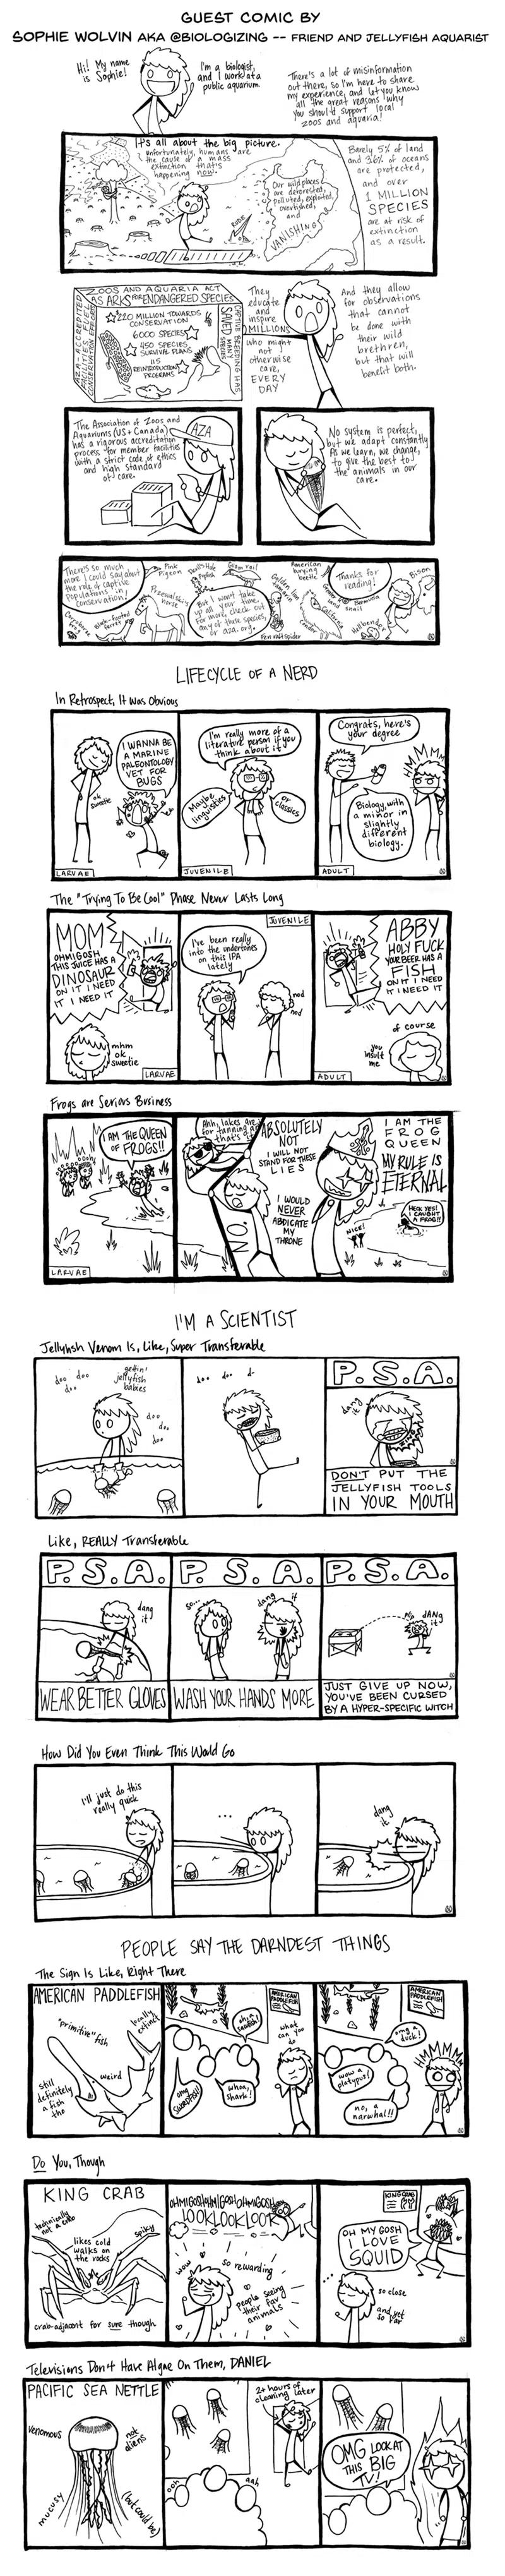 GUEST COMIC BY
SOPHIE WOLVIN AKA @BIOLOGIZING -- FRIEND AND JELLYFISH AQUARIST
Hi! My name
is Sophie!
I'm a biologist,
and I work at a
public aquarium
There's a lot of misinformation
out there, so I'm here to share
my experience, and let you know
all the great reasons why
you should support local
zoos and aquaria!
It's all about the big picture.
Unfortunately, humans are
the cause of a mass
extinction that's
happening now.
RUDE
Our wild places
are deforested,
polluted, exploited,
overfished,
and
VANISHING
Barely 5% of land
and 3.6% of oceans
are protected,
and over
1 MILLION
SPECIES
are at risk of
extinction
as a result.
ZOOS AND AQUARIA ACT
AS ARKS FOR ENDANGERED SPECIES
220 MILLION TOWARDS
CONSERVATION
6000 SPECIES
450 SPECIES
SURVIVAL PLANS
115
REINTRODUCTION
PROGRAMS
CAPTIVE BREEDING HAS
SAVED MANY SPECIES
They
educate
and
inspire
MILLIONS
who might
not
otherwise
care,
EVERY
DAY
And they allow
for observations
that cannot
be done with
their wild
brethren,
but that will
benefit both.
The Association of Zoos and
Aquariums (US + Canada)
has a rigorous accreditation
process for member facilities
with a strict code of ethics
and high standard
of care.
AZA
No system is perfect,
but we adapt constantly
As we learn, we change,
to give the best to
the animals in our
care.
There's so much
more I could say about
the role of captive
populations in
conservation!
Pink
Pigeon
Devil's Hole
Pupfish
Guam rail
American
burying
beetle
Thanks for
reading!
Bison
Przewalski's
horse
But I won't take
up all your scroll
for more, check out
any of these species
or aza.org.
Golden lion
tamarin
California
Condor
Bermuda
snail
Corroboree
frog
Black-footed
ferret
Fen raft spider
Hellbender
LIFECYCLE OF A NERD
In Retrospect, It Was Obvious
I WANNA BE
A MARINE
PALEONTOLOGY
VET FOR
BUGS
ok
sweetie
LARVAE
I'm really more of a
literature person if you
think about it
Maybe
linguistics
or
classics
JUVENILE
Congrats, here's
your degree
Biology, with
a minor in
slightly
different
biology.
ADULT
The "Trying To Be Cool" Phase Never Lasts Long
MOM
OHMIGOSH
THIS JUICE HAS A
DINOSAUR
ON IT I NEED
IT I NEED IT
mhm
ok
sweetie
LARVAE
JUVENILE
I've been really
into the undertones
on this IPA
lately
nod
nod
ABBY
HOLY FUCK
YOUR BEER HAS A
FISH
ON IT I NEED
IT I NEED IT
of course
you
insult
me
ADULT
Frogs are Serious Business
I AM THE QUEEN
OF FROGS!!
oooh!
LARVAE
Ahh, lakes are
for tanning and
that's it
NO.
ABSOLUTELY
NOT
I WILL NOT
STAND FOR THESE
LIES
I WOULD
NEVER
ABDICATE
MY
THRONE
I AM THE
FROG
QUEEN
MY RULE IS
ETERNAL
NICE!
HECK YES!
I CAUGHT
A FROG!!
I'M A SCIENTIST
Jellyfish Venom Is, Like, Super Transferable
doo doo
doo
gettin'
jellyfish
babies
doo
doo
doo
doo doo d-
P.S.A.
dang
it
DON'T PUT THE
JELLYFISH TOOLS
IN YOUR MOUTH
Like, REALLY Transferable
P.S.A.
dang
it
WEAR BETTER GLOVES
P.S.A.
so...
dang it
WASH YOUR HANDS MORE
P.S.A.
dANg
it
JUST GIVE UP NOW,
YOU'VE BEEN CURSED
BY A HYPER-SPECIFIC WITCH
How Did You Even Think This Would Go
I'll just do this
really quick
...
dang
it
PEOPLE SAY THE DARNDEST THINGS
The Sign Is Like, Right There
AMERICAN PADDLEFISH
"primitive" fish
locally
extinct
weird
still
definitely
a fish
tho
AMERICAN
PADDLEFISH
oh, a
sawfish!
what
can you
do
omg
SWORDFISH!
whoa,
shark!
AMERICAN
PADDLEFISH
omg a
duck!
wow a
platypus!
no, a
narwhal!!
HMMMMM
Do You, Though
KING CRAB
technically
not a crab
likes cold
walks on
the rocks
spiky
crab-adjacent for sure though
OHMIGOSHOHMIGOSHOHMIGOSH
LOOKLOOKLOOK
wow
so rewarding
people seeing
their fav
animals
KING CRAB
OH MY GOSH
I LOVE
SQUID
...
so close
and yet
so far
Televisions Don't Have Algae On Them, DANIEL
PACIFIC SEA NETTLE
venomous
not
aliens
mucusy
(but could be)
2+ hours of
cleaning later
ooh
aah
OMG LOOK AT
THIS BIG
TV!